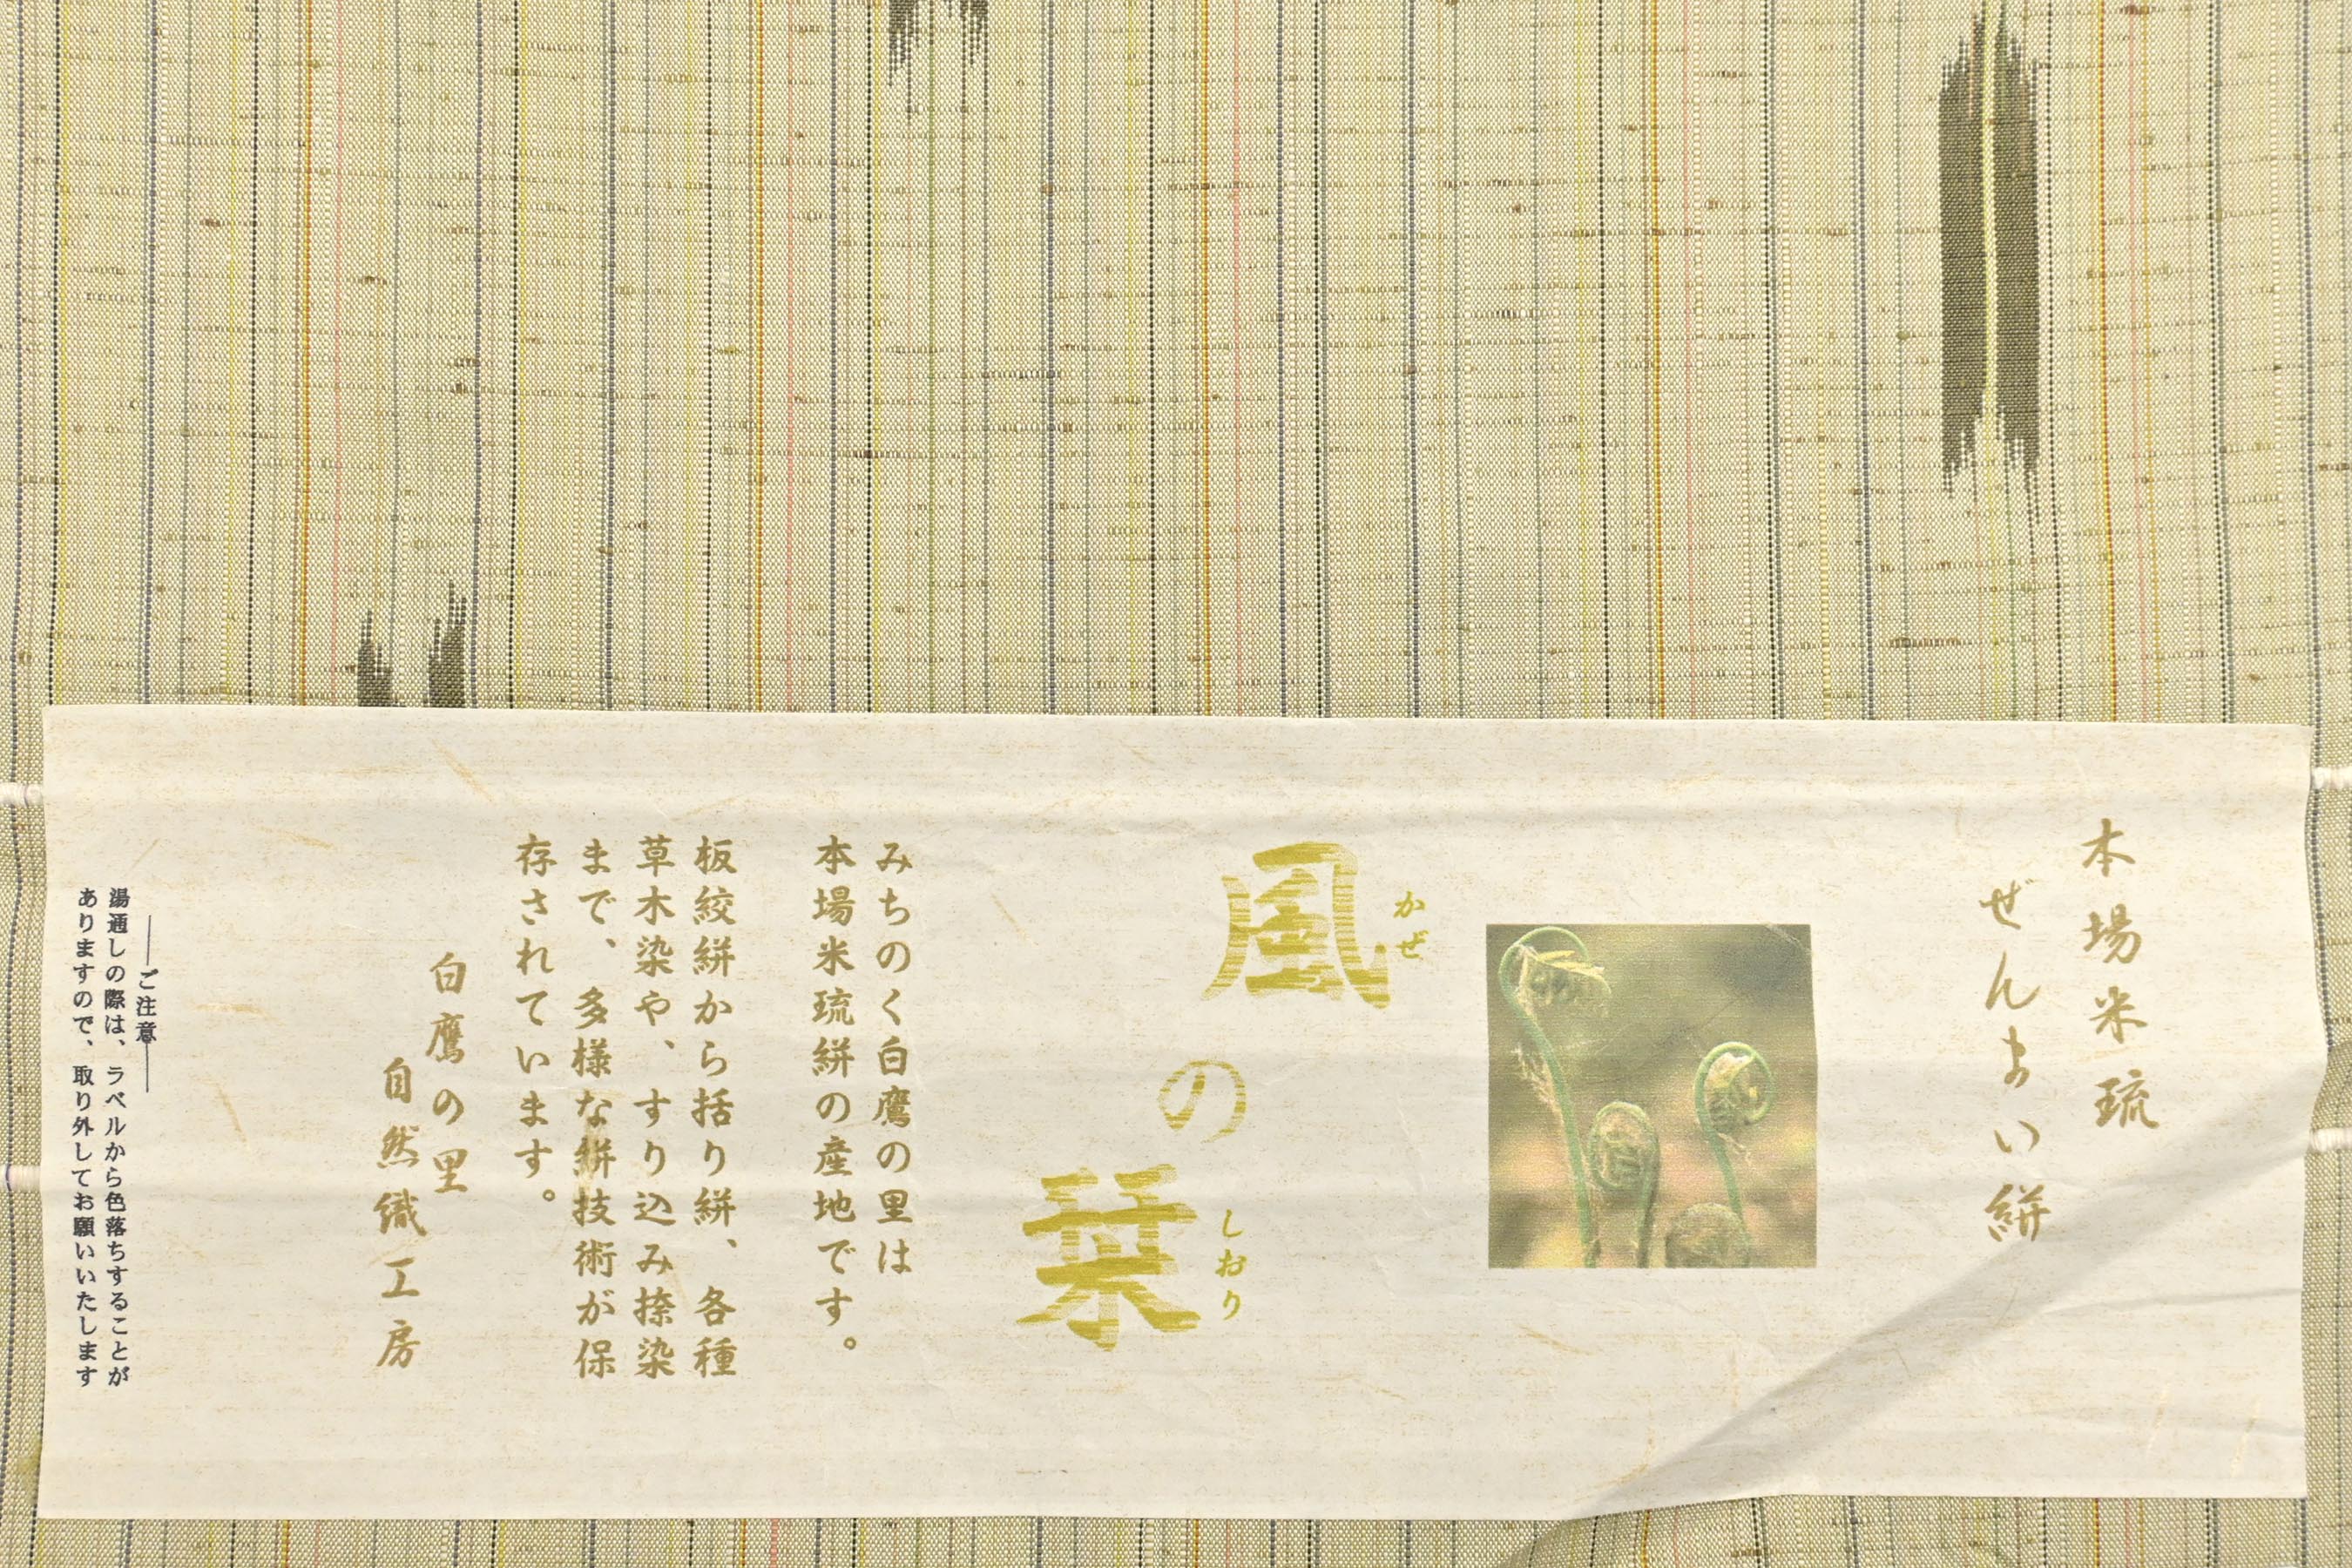 本場米琉
ぜんまい絣
風の栞
かぜ
しおり
みちのく白鷹の里は
本場米琉絣の産地です。
板絞絣から括り絣、各種
草木染や、すり込み捺染
まで、多様な絣技術が保
存されています。
白鷹の里
自然織工房
ご注意
湯通しの際は、ラベルから色落ちすることが
ありますので、取り外してお願いいたします